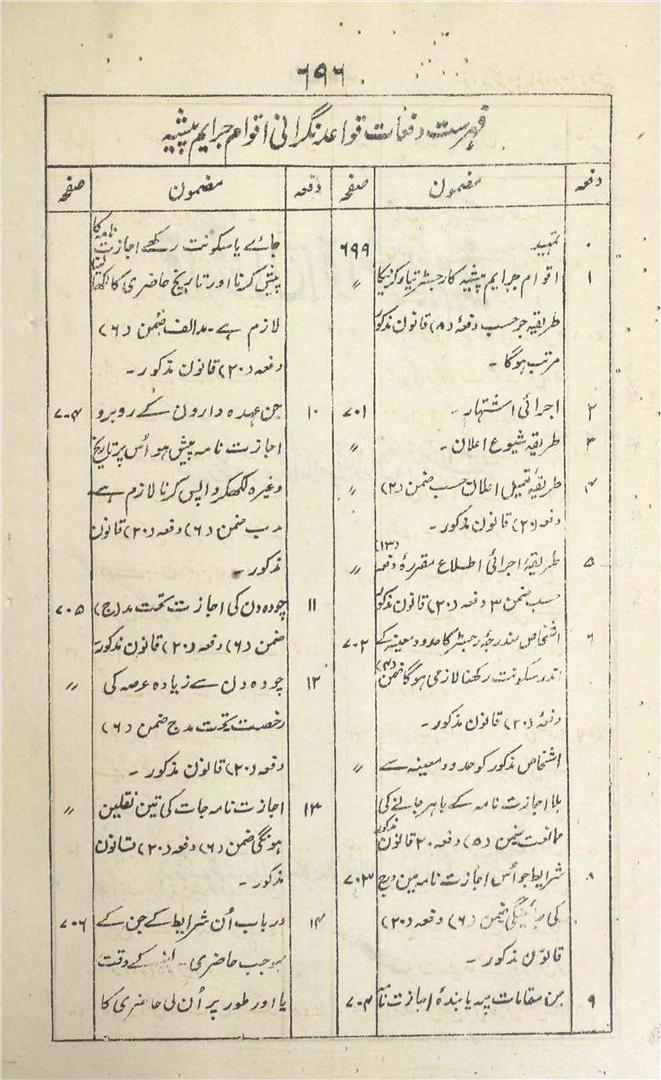 ۶۹۶
فہرست دفعات قواعد نگرانی اقوام جرایم پیشہ
دفعہ مضمون صفحہ
۰ تمہید ۶۹۹
۱ اقوام جرایم پیشیہ کا رجسٹر تیار کرنیکا "
طریقہ جو حسب دفعہٴ (۸) قانون مذکور
مرتب ہوگا ۔
۲ اجرائی اشتہار ۔ ۷۰۱
۳ طریقہ شیوع اعلان ۔ "
۴ طریقۂ تعمیل اعلان حسب ضمن (۲) "
دفعہ (۲۰) قانون مذکور ۔
۵ طریقۂ اجرائی اطلاع مقررۂ دفعہ (۱۳) "
حسب ضمن ۳ دفعہ (۲۰) قانون مذکور
۶ اشخاص مندرجۂ رجسٹر کا حدود معینہ کے ۷۰۲
اندر سکونت رکھنا لازمی ہوگا ضمن (۴)
دفعۂ (۲۰) قانون مذکور ۔
اشخاص مذکور کو حدود معینہ سے "
بلا اجازت نامہ کے باہر جانے کی
ممانعت ضمن (۵) دفعہ ۲۰ قانون مذکور
۸ شرایط جو اُس اجازت نامہ مین درج ۷۰۳
کی جائینگی ضمن (۶) دفعہ (۲۰)
قانون مذکور ۔
۹ جن مقامات پر پابندۂ اجازت نامہ ۷۰۴
دفعہ مضمون صفحہ
جائے یا سکونت رکھے اجازت نامہ کا
پیش کرنا اور تاریخ حاضری کا لکھانا
لازم ہے ۔ مد الف ضمن (۶)
دفعہ (۲۰) قانون مذکور ۔
۱۰ جن عہدہ دارون کے روبرو ۷۰۴
اجازت نامہ پیش ہو اُس پر تاریخ
وغیرہ لکھکر واپس کرنا لازم ہے
مد ب ضمن (۶) دفعہ (۲۰) قانون
مذکور ۔
۱۱ چودہ دن کی اجازت تحت مد (ج) ۷۰۵
ضمن (۶) دفعہ (۲۰) قانون مذکور ۔
۱۲ چودہ دن سے زیادہ عرصہ کی "
رخصت تحت مد ج ضمن (۶)
دفعہ (۲۰) قانون مذکور ۔
۱۳ اجازت نامہ جات کی تین نقلین "
ہونگی ضمن (۶) دفعہ (۲۰) قانون
مذکور ۔
۱۴ درباب اُن شرایط کے جن کے ۷۰۶
بموجب حاضری کے وقت
یا اور طور پر اُن کی حاضری کا